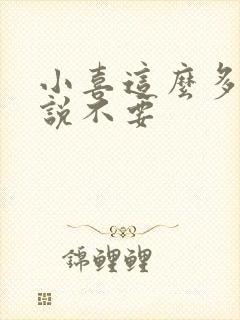 小喜這麼多
說不要
錦鯉鯉